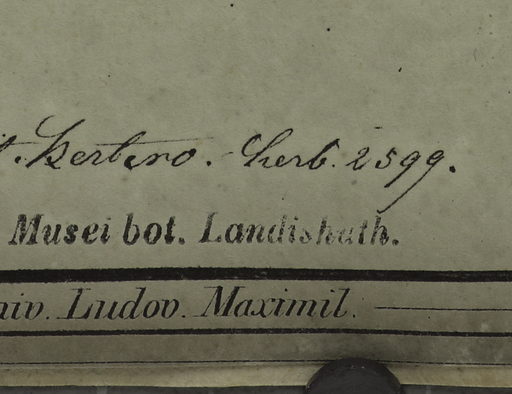 t. Bertero. - herb. 2599.
Musei bot. Landishuth.
niv. Ludov. Maximil.